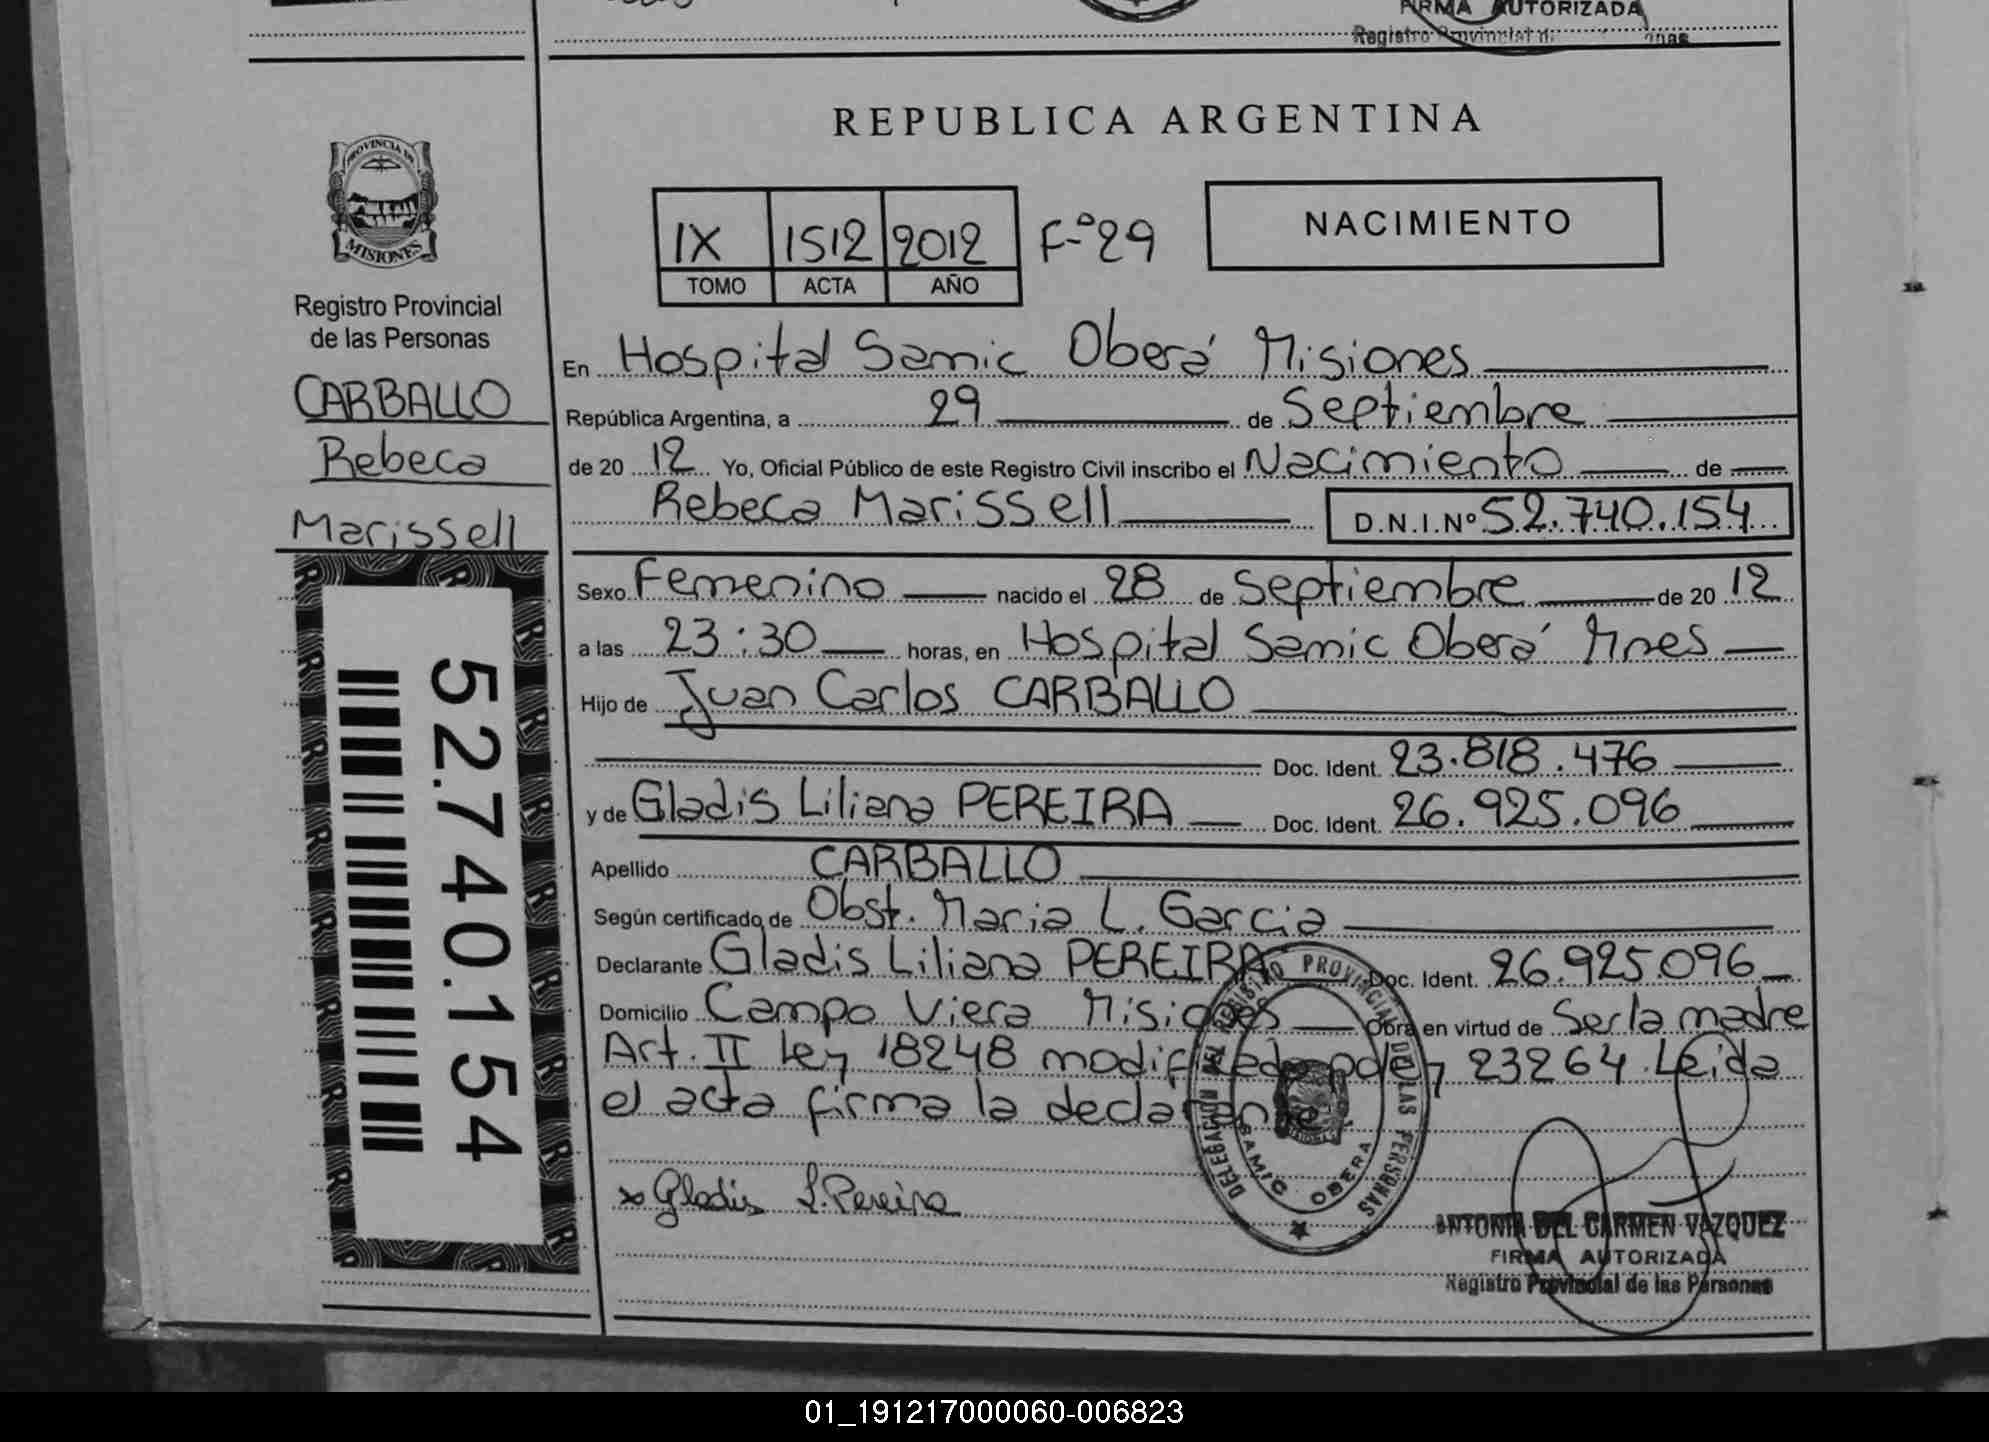 FIRMA AUTORIZADA
Registro Provincial d
PROVINCIA DE
MISIONES
Registro Provincial
de las Personas
CARBALLO
Rebeca
Marissell
52.740.154
REPUBLICA ARGENTINA
IX 1512 2012 F-º29
TOMO ACTA AÑO
NACIMIENTO
En Hospital Samic Oberá Misiones
República Argentina, a 29 de Septiembre
de 20 12 Yo, Oficial Público de este Registro Civil inscribo el Nacimiento de
Rebeca Marissell D.N.I.Nº 52.740.154
Sexo Femenino nacido el 28 de Septiembre de 20 12
a las 23:30 horas, en Hospital Samic Oberá Mnes
Hijo de Juan Carlos CARBALLO
Doc. Ident. 23.818.476
y de Gladis Liliana PEREIRA Doc. Ident. 26.925.096
Apellido CARBALLO
Según certificado de Obst. Maria L. Garcia
Declarante Gladis Liliana PEREIRA Doc. Ident. 26.925.096
Domicilio Campo Viera Misiones Obra en virtud de Ser la madre
Art. II Ley 18248 modificada por ley 23264. Leida
el acta firma la declarante.
DELEGACION DEL REGISTRO PROVINCIAL DE LAS PERSONAS
SAMIC OBERA
x Gladis L. Pereira
ANTONIA DEL CARMEN VAZQUEZ
FIRMA AUTORIZADA
Registro Provincial de las Personas
01_191217000060-006823